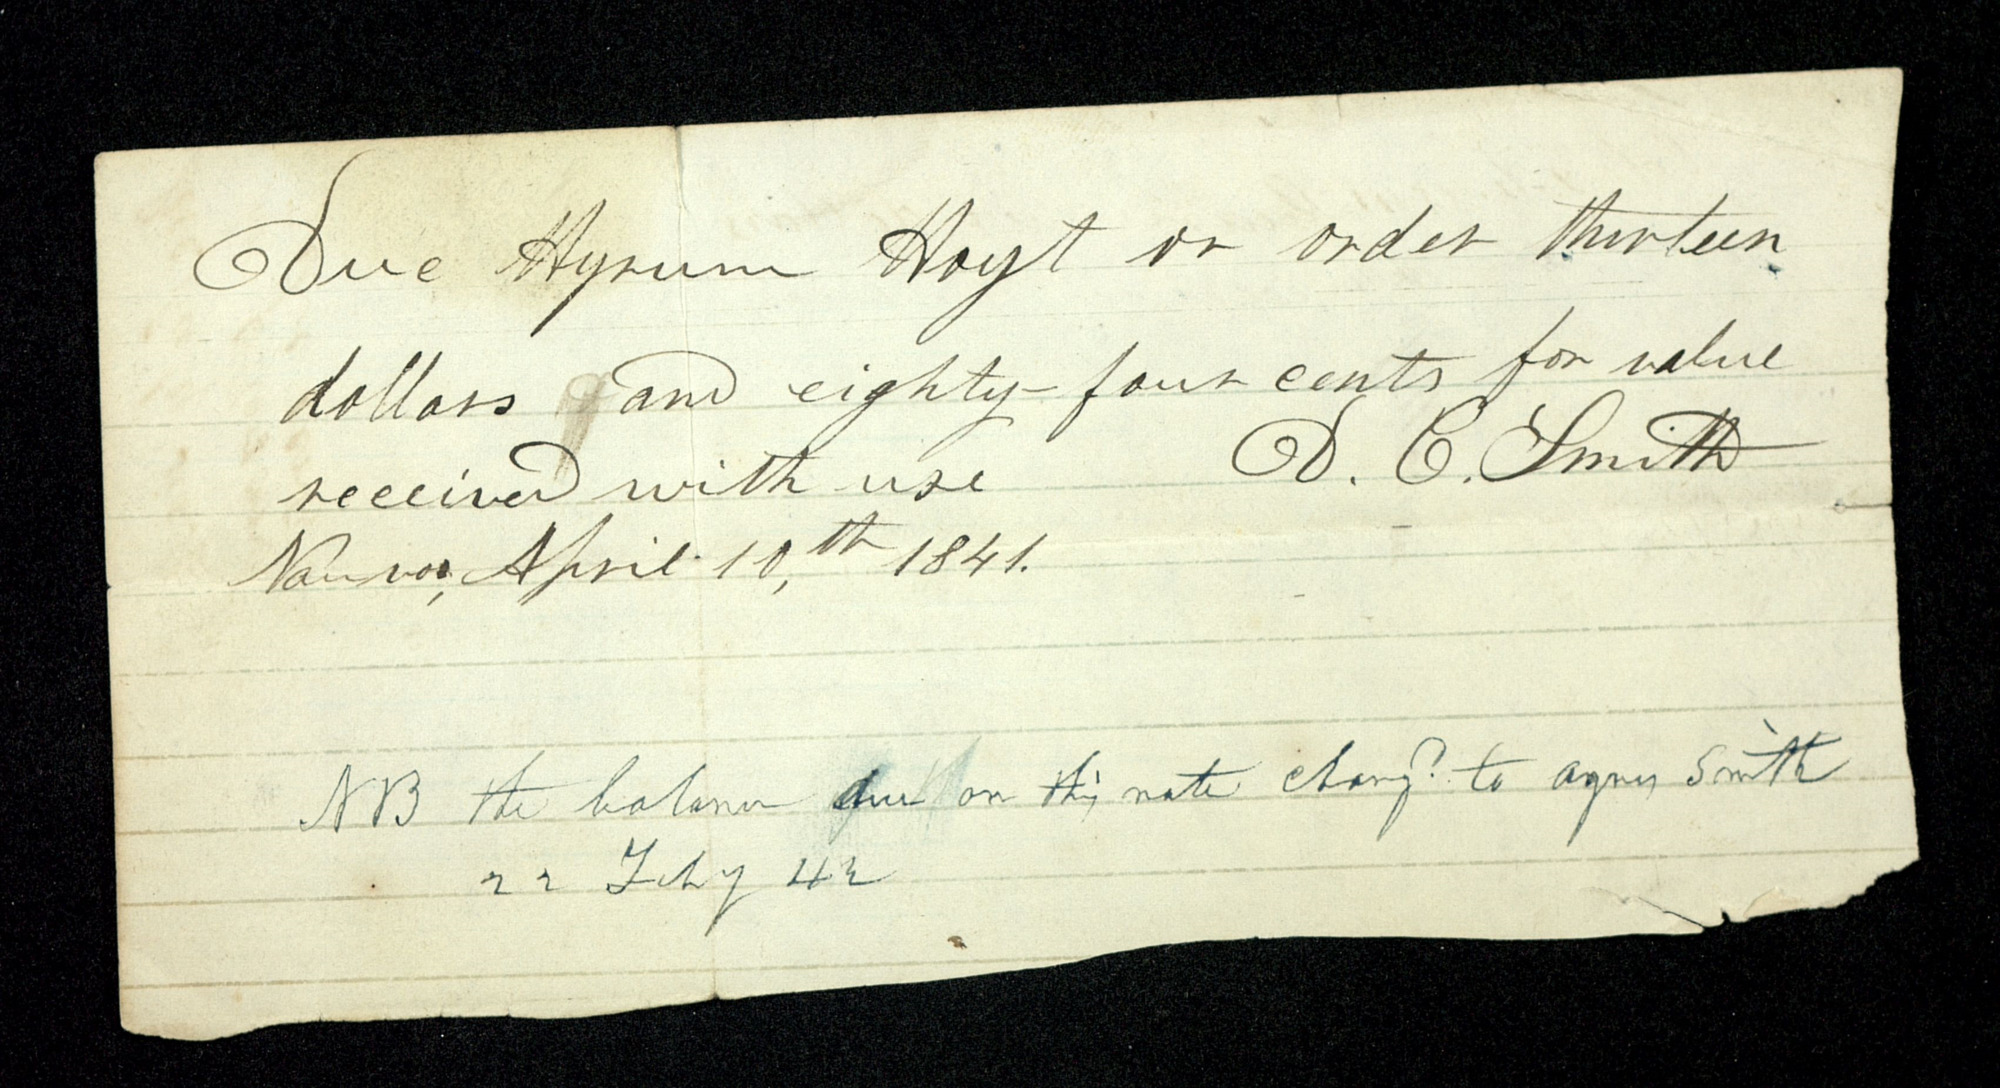 Due Hyrum Hoyt or order thirteen
dollars and eighty-four cents for value
received with use D. C. Smith
Nauvoo, April 10,th 1841.
NB the balance due on this note charg? to agnes Smith
22 Feby 42